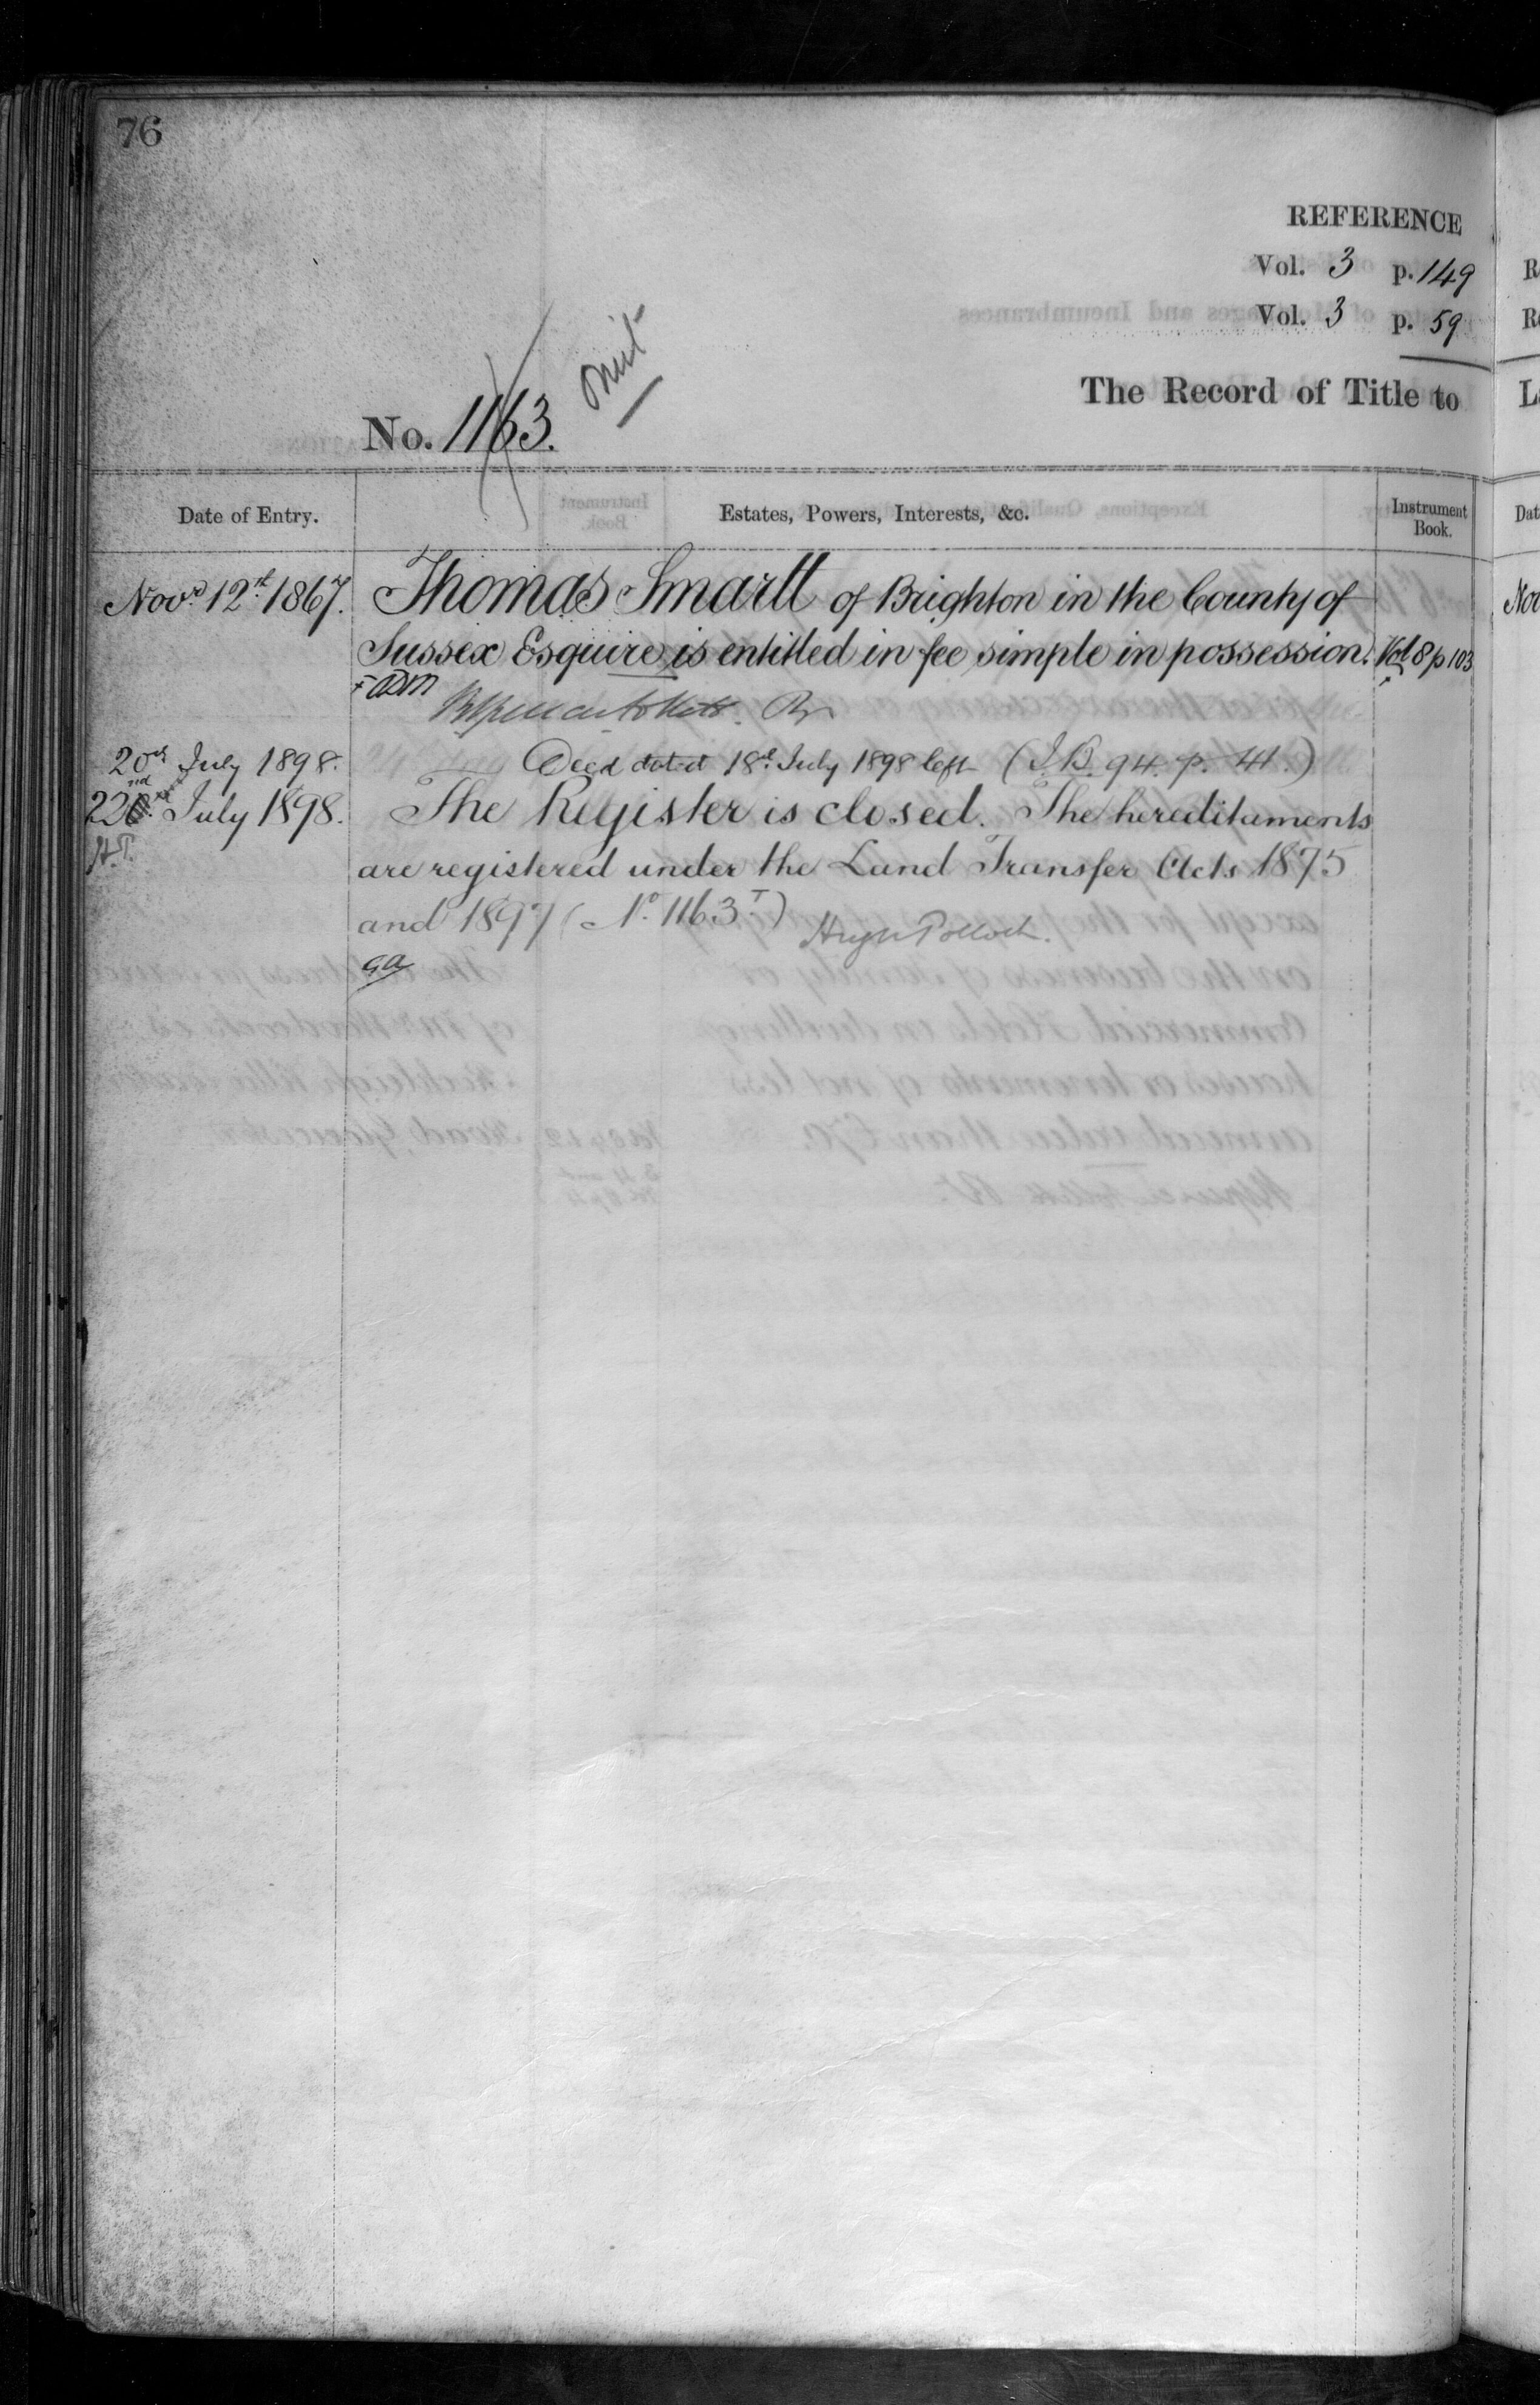 76
REFERENCE
Vol. 3 p. 149
Vol. 3 p. 59
The Record of Title to
No. 1163. Omit
Date of Entry.
Estates, Powers, Interests, &c.
Instrument Book.
Novr 12th 1867.
Thomas Smartt of Brighton in the County of
Sussex Esquire is entitled in fee simple in possession. Vol 8 p 103
20th July 1898. Deed dated 18th July 1898 left (I.B. 94. p. 41.)
22nd July 1898. The Register is closed. The hereditaments
H.P. are registered under the Land Transfer Acts 1875
and 1897 (No. 1163 T.) Hugh Pollock.